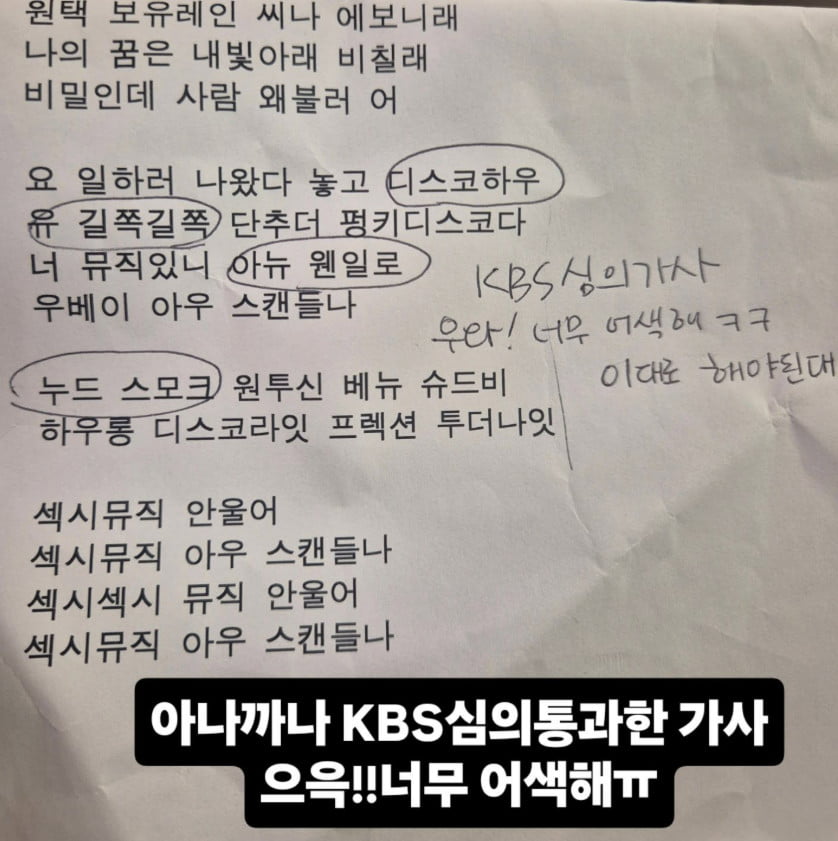 원택 보유레인 씨나 에보니래
나의 꿈은 내빛아래 비칠래
비밀인데 사람 왜불러 어
요 일하러 나왔다 놓고 디스코하우
유 길쭉길쭉 단추더 펑키디스코다
너 뮤직있니 아뉴 웬일로
우베이 아우 스캔들나
KBS심의가사
우와! 너무 어색해 ㅋㅋ
이대로 해야된대
누드 스모크 원투신 베뉴 슈드비
하우롱 디스코라잇 프렉션 투더나잇
섹시뮤직 안울어
섹시뮤직 아우 스캔들나
섹시섹시 뮤직 안울어
섹시뮤직 아우 스캔들나
아나까나 KBS심의통과한 가사
으윽!!너무 어색해ㅠ